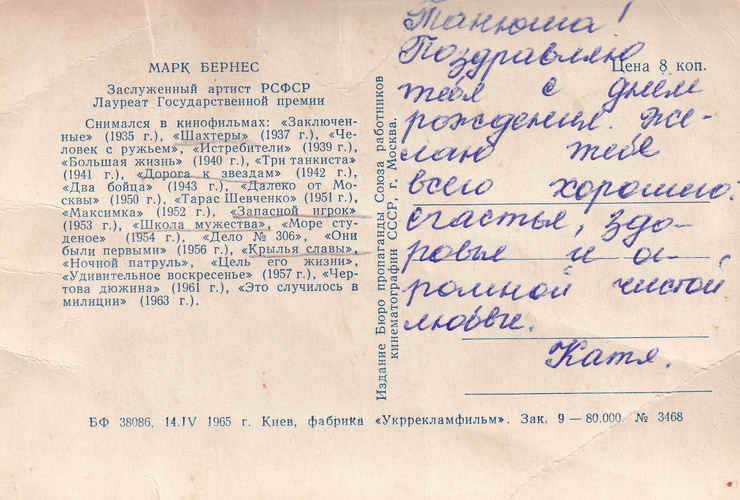 МАРК БЕРНЕС
Заслуженный артист РСФСР
Лауреат Государственной премии
Снимался в кинофильмах: «Заключен-
ные» (1935 г.), «Шахтеры» (1937 г.), «Че-
ловек с ружьем», «Истребители» (1939 г.),
«Большая жизнь» (1940 г.), «Три танкиста»
(1941 г.), «Дорога к звездам» (1942 г.),
«Два бойца» (1943 г.), «Далеко от Мо-
сквы» (1950 г.), «Тарас Шевченко» (1951 г.),
«Максимка» (1952 г.), «Запасной игрок»
(1953 г.), «Школа мужества», «Море сту-
деное» (1954 г.), «Дело № 306», «Они
были первыми» (1956 г.), «Крылья славы»,
«Ночной патруль», «Цель его жизни»,
«Удивительное воскресенье» (1957 г.), «Чер-
това дюжина» (1961 г.), «Это случилось в
милиции» (1963 г.).
Издание Бюро пропаганды Союза работников
кинематографии СССР, г. Москва.
Цена 8 коп.
Танюша!
Поздравляю
тебя с днем
рождения. Же-
лаю тебе
всего хорошего.
счастья, здо-
ровья и о-
громной чистой
любви.
Катя.
БФ 38086, 14.IV 1965 г. Киев, фабрика «Укррекламфильм». Зак. 9 — 80.000. № 3468